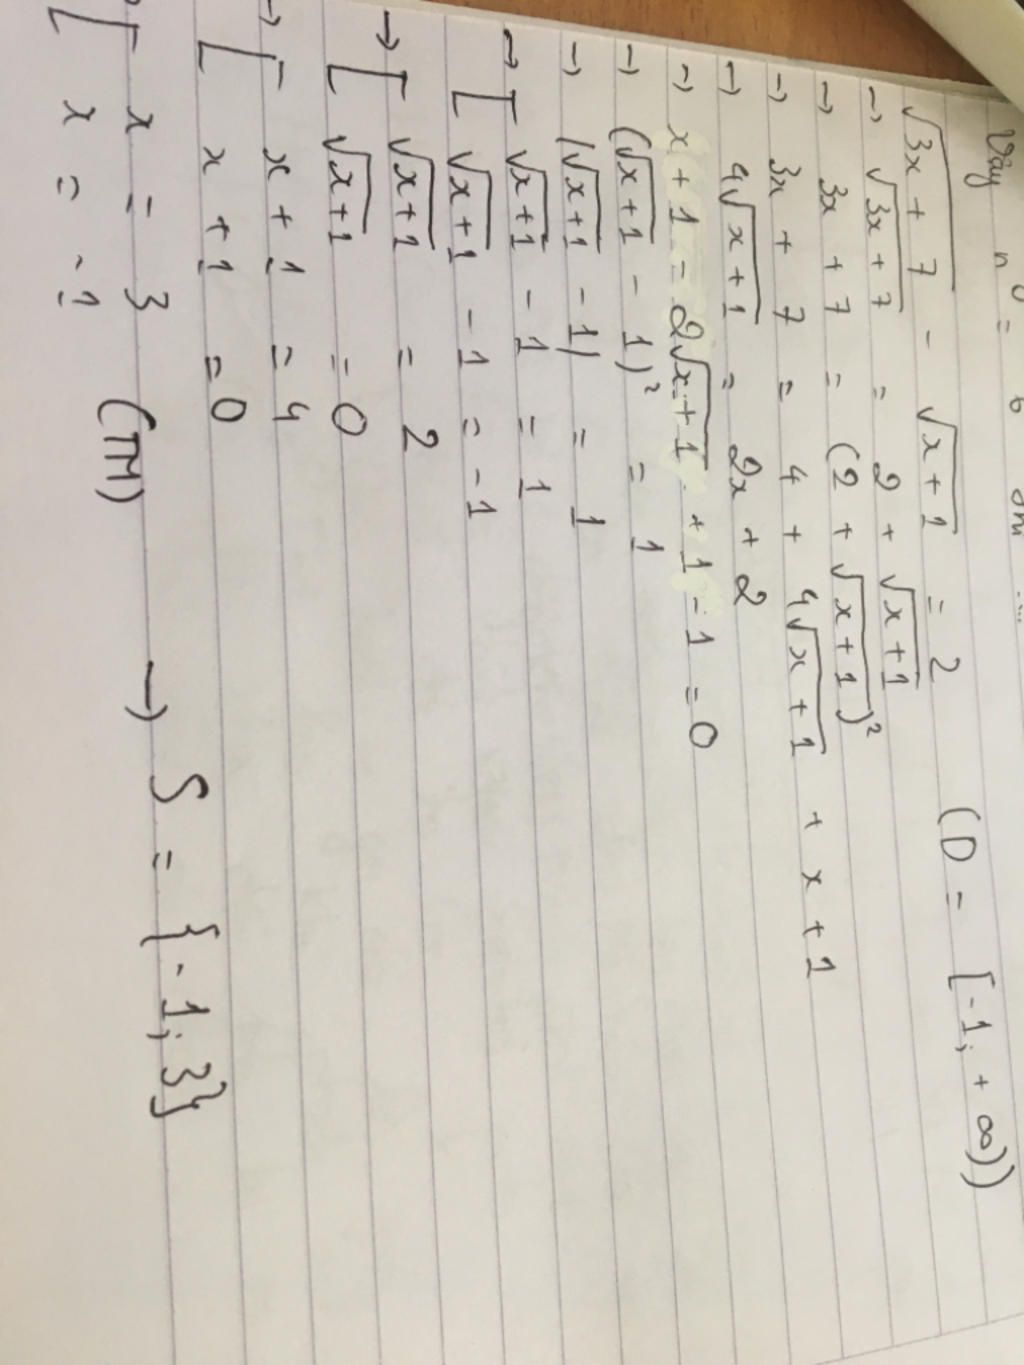 Vậy
√3x + 7 - √x + 1 = 2 (D = [-1; +∞))
→ √3x + 7 = 2 + √x + 1
→ 3x + 7 = (2 + √x + 1)²
→ 3x + 7 = 4 + 4√x + 1 + x + 1
→ 4√x + 1 = 2x + 2
→ x + 1 = 2√x + 1 + 1 - 1 = 0
→ (√x + 1 - 1)² = 1
→ |√x + 1 - 1| = 1
→ [ √x + 1 - 1 = 1
√x + 1 - 1 = -1
→ [ √x + 1 = 2
√x + 1 = 0
→ [ x + 1 = 4
x + 1 = 0
→ [ x = 3
x = -1 (TM) → S = {-1; 3}